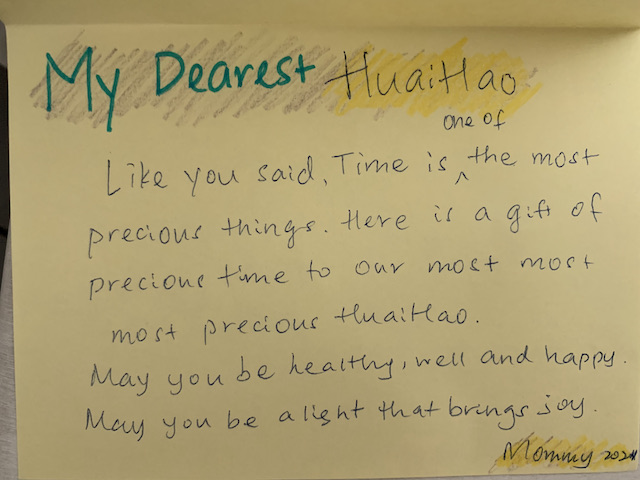 My Dearest HuaiHao
one of
Like you said, Time is ^ the most
precious things. Here is a gift of
precious time to our most most
most precious HuaiHao.
May you be healthy, well and happy.
May you be a light that brings joy.
Mommy